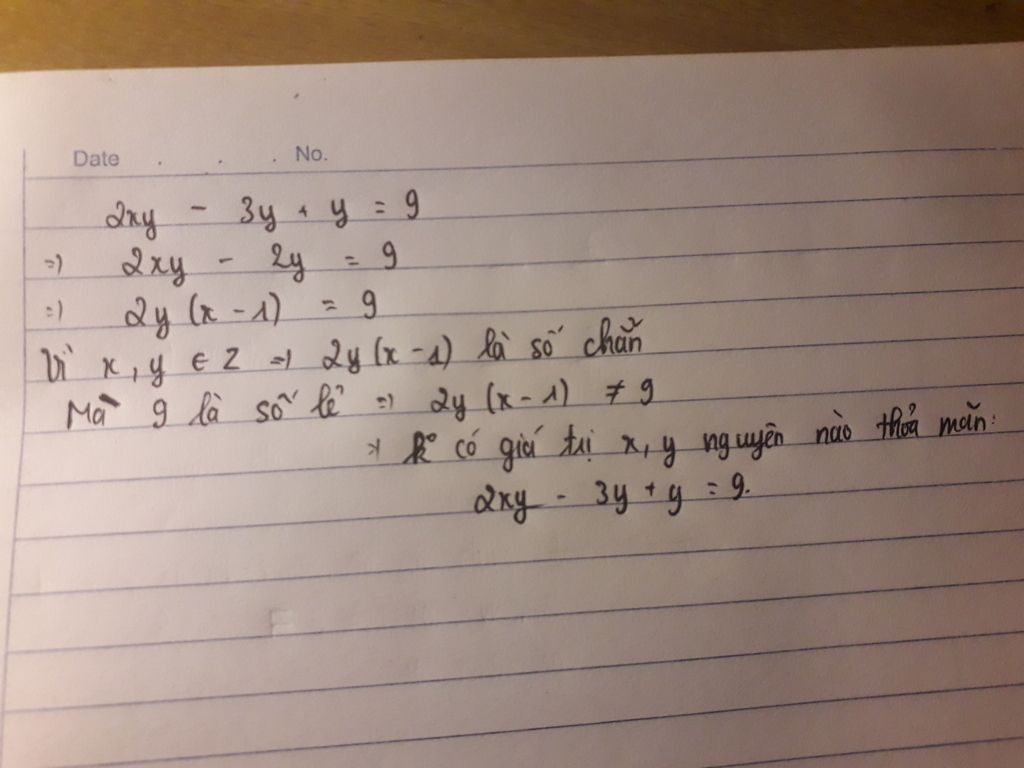 Date . . . No.
2xy - 3y + y = 9
=) 2xy - 2y = 9
=) 2y (x - 1) = 9
Vì x, y ∈ Z =) 2y (x - 1) là số chẵn
Mà 9 là số lẻ =) 2y (x - 1) ≠ 9
=) k° có giá trị x, y nguyên nào thỏa mãn:
2xy - 3y + y = 9.